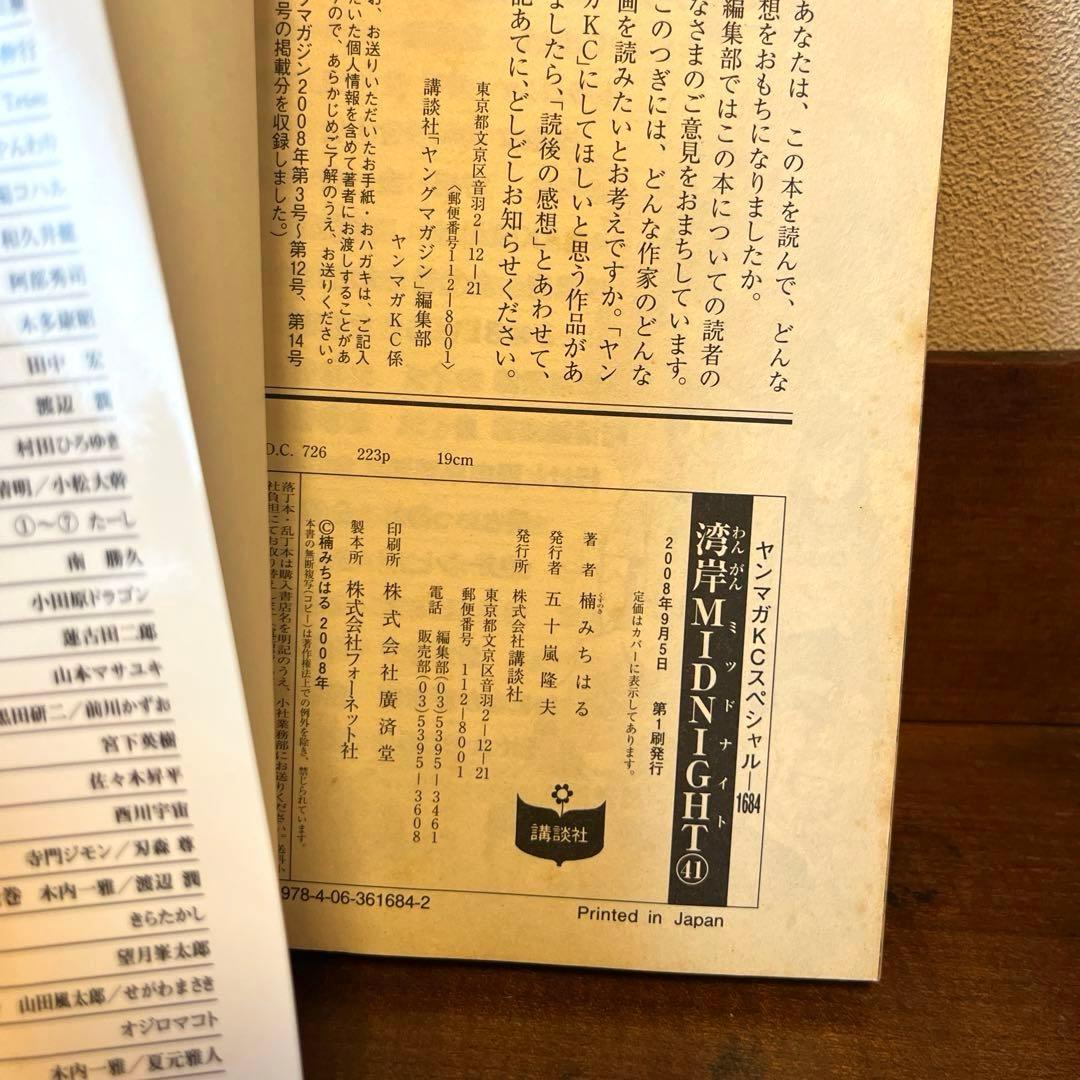 あなたは、この本を読んで、どんな
想をおもちになりましたか。
編集部ではこの本についての読者の
なさまのご意見をおまちしています。
このつぎには、どんな作家のどんな
画を読みたいとお考えですか。「ヤン
ガKC」にしてほしいと思う作品があ
ましたら、「読後の感想」とあわせて、
記あてに、どしどしお知らせください。
東京都文京区音羽2―12―21
〈郵便番号112―8001〉
講談社「ヤングマガジン」編集部
ヤンマガKC係
お、お送りいただいたお手紙・おハガキは、ご記入
だいた個人情報を含めて著者にお渡しすることがあ
すので、あらかじめご了解のうえ、お送りください。
グマガジン2008年第3号～第12号、第14号
号の掲載分を収録しました。）
D.C. 726 223p 19cm
ヤンマガKCスペシャル―1684
わんがんミッドナイト
湾岸MIDNIGHT㊶
2008年9月5日 第1刷発行
定価はカバーに表示してあります。
著者 楠みちはる
くすのき
発行者 五十嵐隆夫
発行所 株式会社講談社
東京都文京区音羽2―12―21
郵便番号 112―8001
電話 編集部(03)5395―3461
販売部(03)5395―3608
印刷所 株式会社廣済堂
製本所 株式会社フォーネット社
©楠みちはる 2008年
本書の無断複写(コピー)は著作権法上での例外を除き、禁じられています。
落丁本・乱丁本は購入書店名を明記のうえ、小社業務部にお送りください。送料小
社負担にてお取り替え
講談社
978-4-06-361684-2
Printed in Japan
伸行
Tetsu
陽コハル
和久井健
阿部秀司
木多康昭
田中 宏
渡辺 潤
村田ひろゆき
清明／小松大幹
①～⑦ たーし
南 勝久
小田原ドラゴン
蓮古田二郎
山本マサユキ
黒田研二／前川かずお
宮下英樹
佐々木昇平
西川宇宙
寺門ジモン／刃森 尊
巻 木内一雅／渡辺 潤
きらたかし
望月峯太郎
山田風太郎／せがわまさき
オジロマコト
木内一雅／夏元雅人